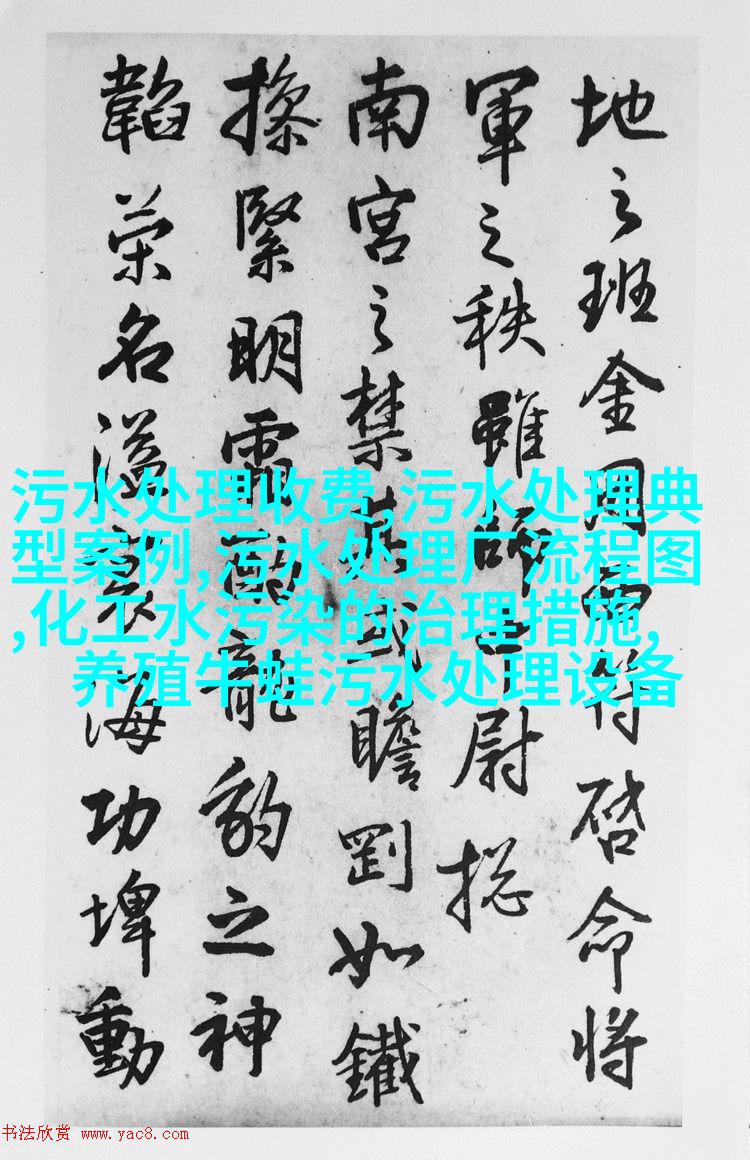 地之班金用符啓命將
軍之秩雖師尉揔
南宮之禁或瞻剛如鐵
操緊明霜龍豹之神
韜榮名溢海功埤動
污水处理收费,污水处理典
型案例,污水处理厂流程图
,化工水污染的治理措施,
养殖牛蛙污水处理设备
书法欣赏 www.yac8.com